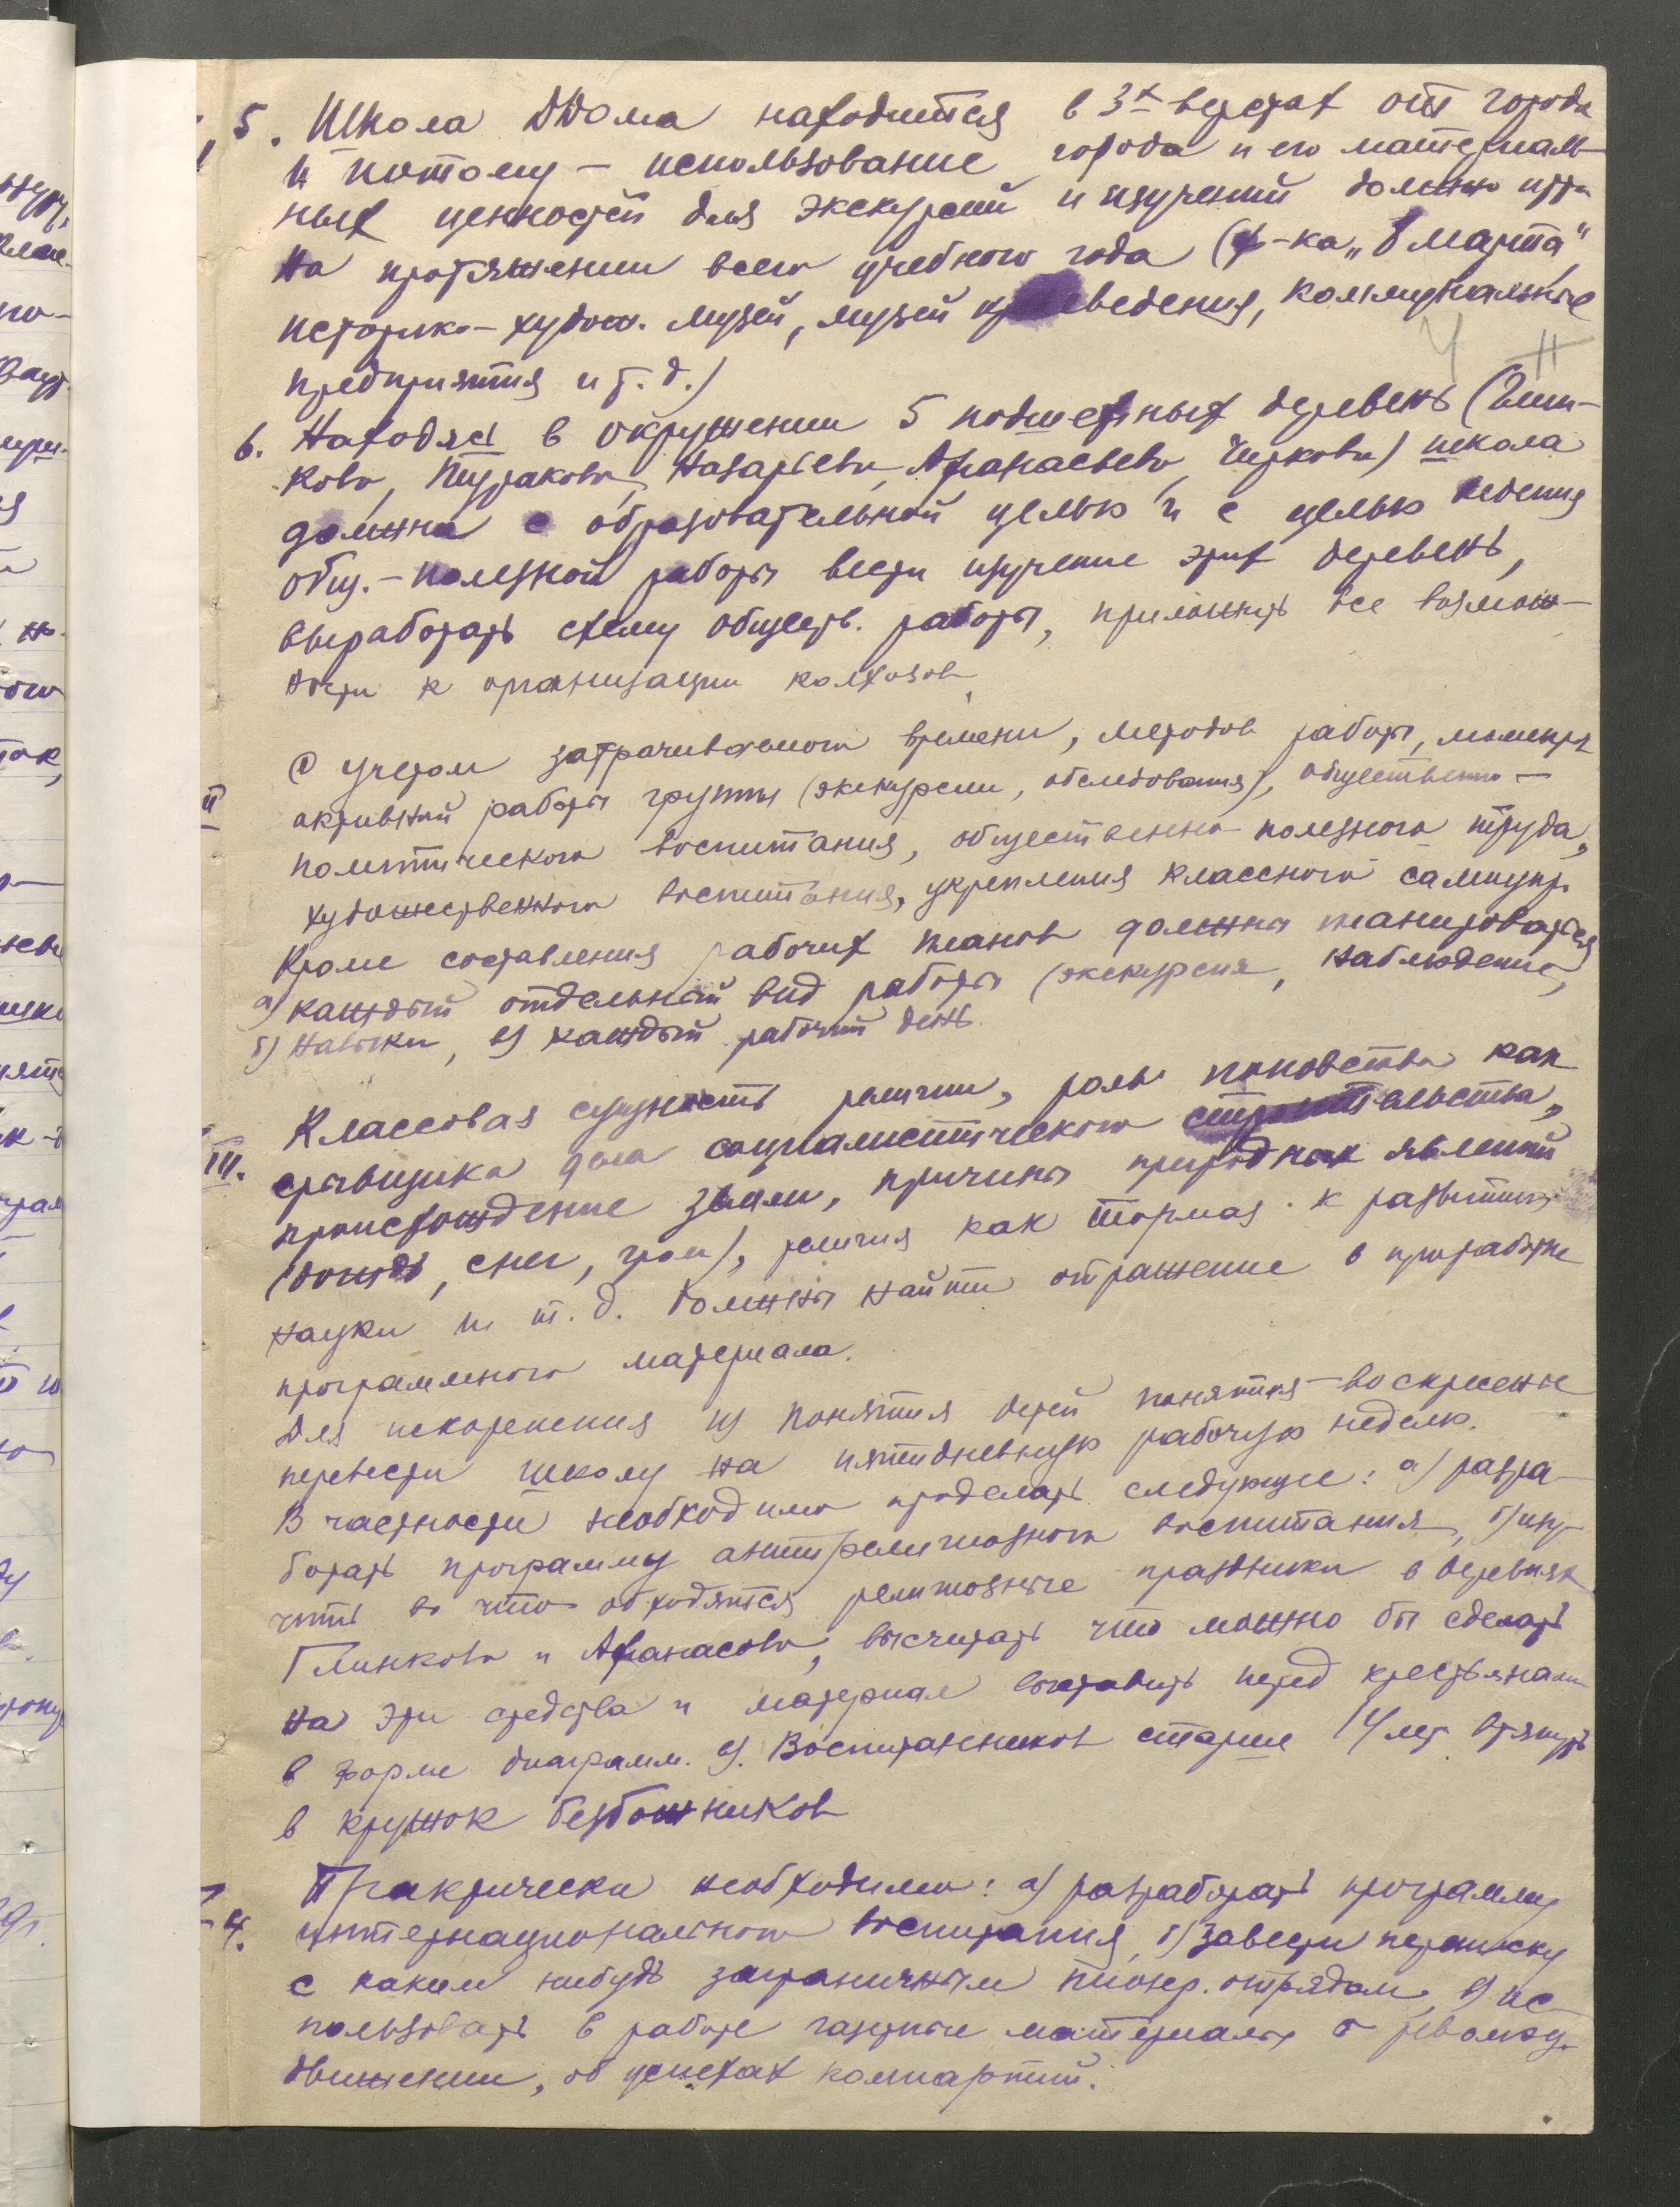 5. Школа ДДома находится в 3х верстах от города
и потому – использование города и его материаль-
ных ценностей для экскурсий и изучений должно итти
на протяжении всего учебного года (ф-ка „8 марта",
историко-худож. музей, музей краеведения, коммунальные
предприятия и т. д.)
6. Находясь в окружении 5 подшефных деревень (Глин-
ково, Назарьево, Афанасьево, Чирково) школа
должна с образовательной целью и с целью ведения
общ.-полезной работы вести изучение этих деревень,
выработать схему обществ. работы, приложить все возмож-
ности к организации колхозов
II С учетом затрачиваемого времени, методов работы, моменты
активной работы группы (экскурсии, обследования), общественно-
политического воспитания, общественно-полезного труда,
художественного воспитания, укрепления классного самоупр.
Кроме составления рабочих планов должны планироваться
а) каждый отдельный вид работы (экскурсия, наблюдение,
б) навыки, в) каждый рабочий день.
III. Классовая сущность религии, роль поповства как
дела социалистического строительства,
происхождение земли, причины природных явлений
(дождь, снег, гром), религия как тормаз к развитию
науки и т. д. должны найти отражение в проработке
программного материала.
Для искоренения из понятия детей понятия – воскресенье
перевести школу на пятидневную рабочую неделю.
В частности необходимо проделать следующее: а) разра-
ботать программу антирелигиозного воспитания, б) изу-
чить во что обходятся религиозные праздники в деревнях
Глинково и Афанасово, высчитать что можно бы сделать
на эти средства и материал выставить перед крестьянами
в форме диаграмм. в). Воспитанников старше 14 лет втянуть
в кружок безбожников
4. Практически необходимо: а) разработать программу
интернационального воспитания, б) Завести переписку
с каким нибудь заграничным пионер. отрядом, в) ис-
пользовать в работе газетные материалы о революц.
движении, об успехах компартий.